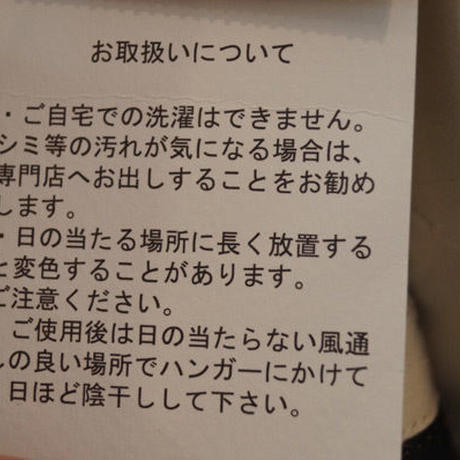 お取扱いについて
・ご自宅での洗濯はできません。
シミ等の汚れが気になる場合は、
専門店へお出しすることをお勧め
します。
・日の当たる場所に長く放置する
と変色することがあります。
ご注意ください。
ご使用後は日の当たらない風通
しの良い場所でハンガーにかけて
日ほど陰干しして下さい。